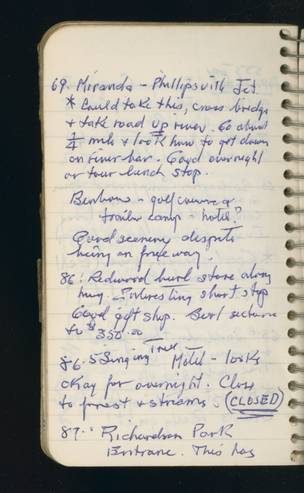 69. Miranda - Phillipsville Jct
* Could take this, cross bridge
+ take road up river. Go about
1/4 mile + look how to get down
on river bar. Good overnight
or tour lunch stop.
Benbows - golf course or
trailer camp - hotel?
Good scenery despite
being on freeway.
86: Redwood burl store along
hwy. Interesting short stop
Good gift shop. Burl sections
to $350.00
86.5 Singing Tree Motel - looks
okay for overnight. Close
to forest + streams. (CLOSED)
87.: Richardson Park
Entrance. This has